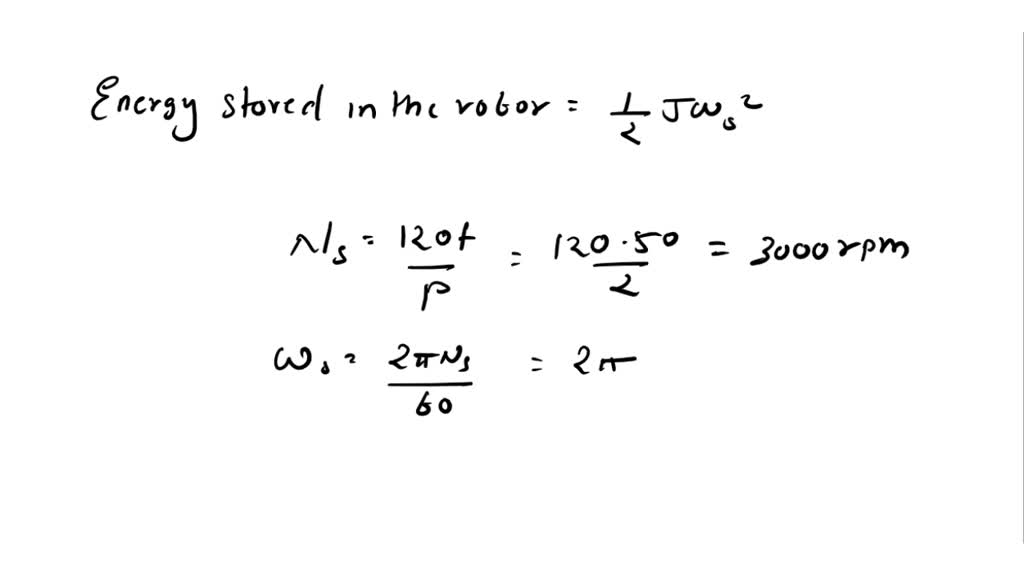 Energy stored in the rotor = 1/2 Jωs²
Ns = 120f/P = 120·50/2 = 3000rpm
ωs = 2πNs/60 = 2π